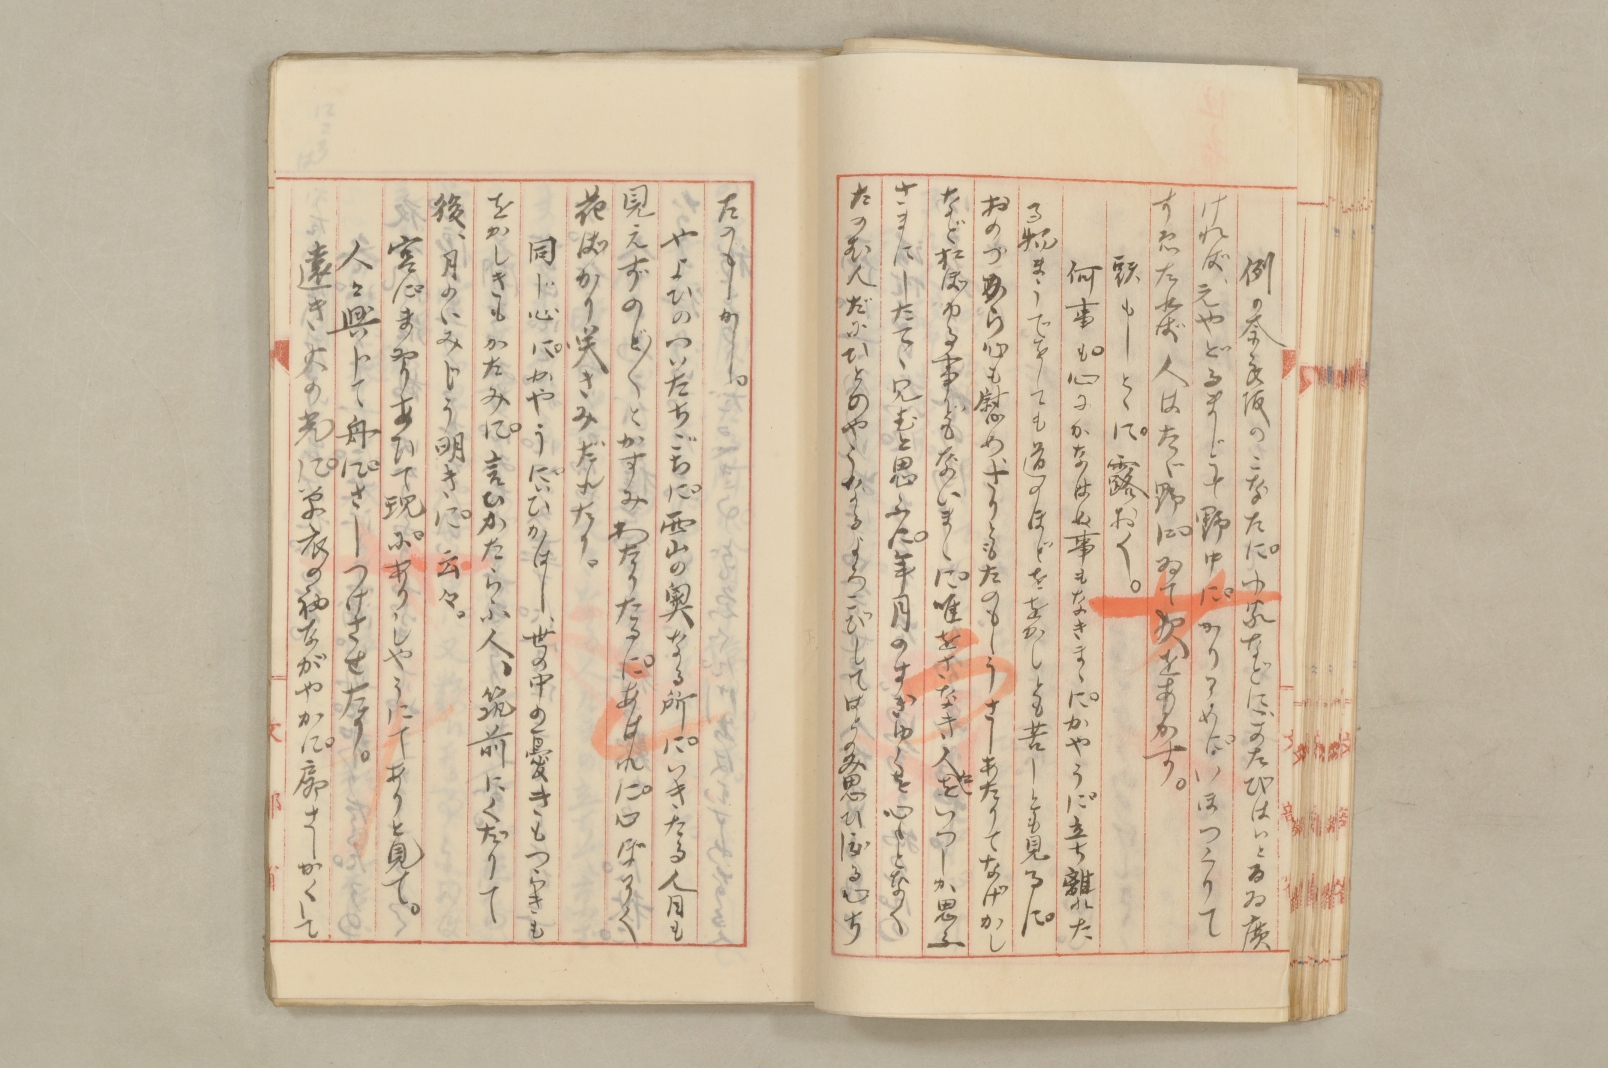 例の奈良坂のこなたに。小家などに。このたびはいとるゐ廣
ければ、えやどるまじうて野中に。かりそめに。いほつくりて
すゑたれば人はたゞ野に。ゐて夜をあかす。
頭もしとゝに。露おく。
何事も。心にかなはぬ事もなきまゝに。かやうに。立ち離れた
る物まうでをしても道のほどををかしとも苦しとも見るに。
おのづから心も慰め、さりともたのもしうさしあたりてなげかし
などおぼゆる事どもないまゝに。唯をさなき人々をいつしか思ふ
さまにしたてゝ見むと思ふに。年月のすぎゆくを心もとなく
たのむ人だにひとのやうなるよろこびしてはとのみ思ひ渡る心ち
たのもしかし。
やよひのついたちごろに。西山の奥なる所に。いきたる人目も
見えずのどのどとかすみわたりたるに。あはれに。心ぼそく
花ばかり咲きみだれたり。
同じ心に。かやうに。いひかはし、世の中の憂きもつらきも
をかしきもかたみに。言ひかたらふ人、筑前にくだりて
後、月のいみじう明きに。云々。
宮にまゐりあひて現に。ありしやうにてありと見て。
人々興じて舟に。さしつけさせたり。
遠き火の光に。單衣の袖ながやかに。扇さしかくして